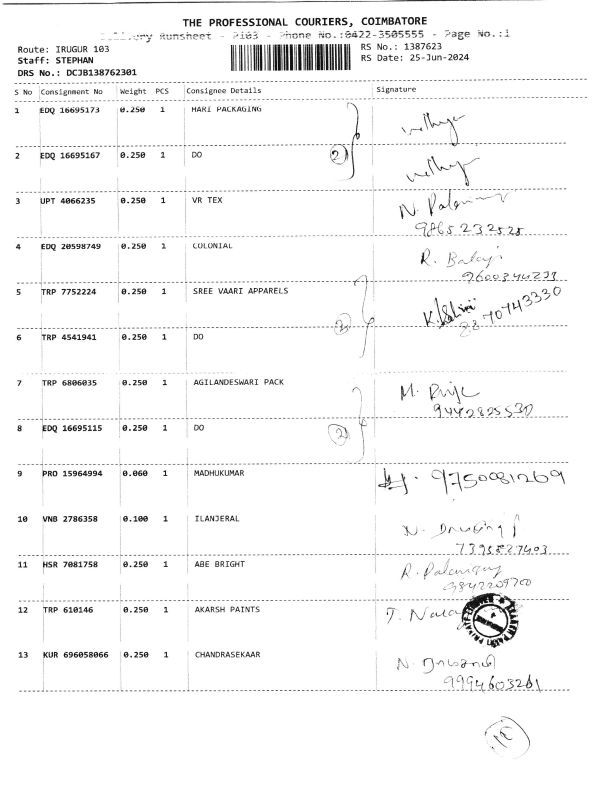 THE PROFESSIONAL COURIERS, COIMBATORE
Delivery Runsheet - P103 - Phone No.:0422-3505555 - Page No.:1
Route: IRUGUR 103
RS No.: 1387623
Staff: STEPHAN
RS Date: 25-Jun-2024
DRS No.: DCJB138762301
S No Consignment No Weight PCS Consignee Details Signature
1 EDQ 16695173 0.250 1 HARI PACKAGING
2 EDQ 16695167 0.250 1 DO 2
3 UPT 4066235 0.250 1 VR TEX N.
9865232525
4 EDQ 20598749 0.250 1 COLONIAL R. Balaji
9600344233
5 TRP 7752224 0.250 1 SREE VAARI APPARELS
8870743330
6 TRP 4541941 0.250 1 DO 2
7 TRP 6806035 0.250 1 AGILANDESWARI PACK M.
9442825530
8 EDQ 16695115 0.250 1 DO 2
9 PRO 15964994 0.060 1 MADHUKUMAR 9750081269
10 VNB 2786358 0.100 1 ILANJERAL N.
7395827403
11 HSR 7081758 0.250 1 ABE BRIGHT R.
9842209700
12 TRP 610146 0.250 1 AKARSH PAINTS T.
13 KUR 696058066 0.250 1 CHANDRASEKAAR N.
9994603261